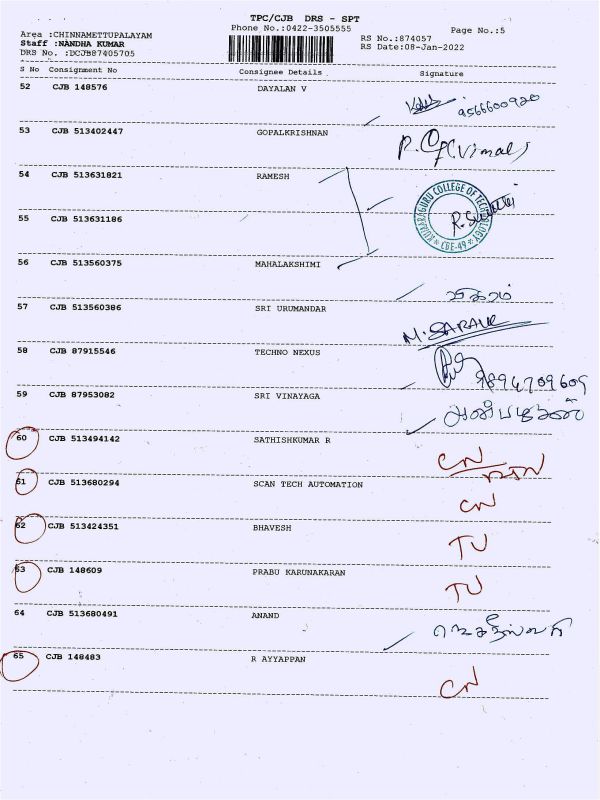 TPC/CJB DRS - SPT
Phone No.:0422-3505555
Page No.:5
Area :CHINNAMETTUPALAYAM
RS No.:874057
Staff :NANDHA KUMAR
RS Date:08-Jan-2022
DRS No. :DCJB87405705
S No Consignment No Consignee Details Signature
52 CJB 148576 DAYALAN V
9566600920
53 CJB 513402447 GOPALKRISHNAN
(Vimal)
54 CJB 513631821 RAMESH
KUMARAGURU COLLEGE OF TECHNOLOGY
* CBE-49 *
55 CJB 513631186
56 CJB 513560375 MAHALAKSHIMI
57 CJB 513560386 SRI URUMANDAR
58 CJB 87915546 TECHNO NEXUS
9894709609
59 CJB 87953082 SRI VINAYAGA
60 CJB 513494142 SATHISHKUMAR R
CN
61 CJB 513680294 SCAN TECH AUTOMATION
CN
62 CJB 513424351 BHAVESH
TU
63 CJB 148609 PRABU KARUNAKARAN
TU
64 CJB 513680491 ANAND
65 CJB 148483 R AYYAPPAN
CN